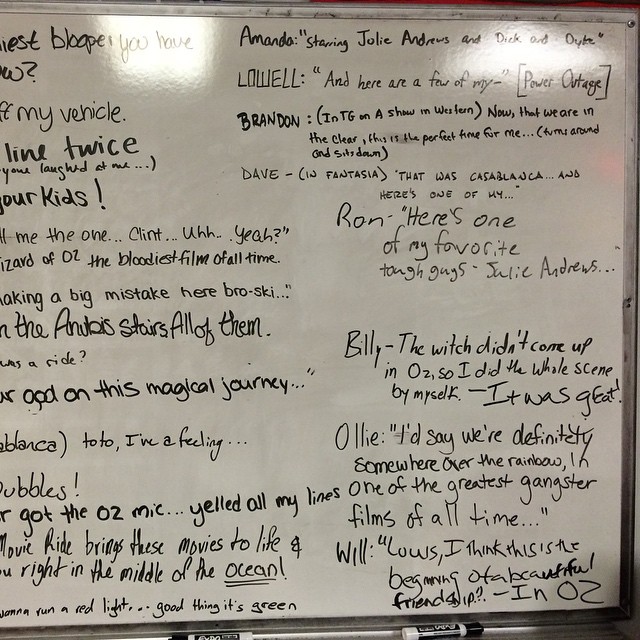 iest blooper you have
ow?
ff my vehicle.
line twice
you laughed at me...)
your kids!
ll me the one... Clint... Uhh.. Yeah?"
izard of OZ the bloodiest film of all time.
aking a big mistake here bro-ski..."
n the Anubis stairs. All of them.
was a ride?
ur god on this magical journey..."
ablanca) toto, I've a feeling...
ubbles!
r got the OZ mic... yelled all my lines
Movie Ride brings these movies to life &
ou right in the middle of the ocean!
wanna run a red light... good thing it's green
Amanda: "Starring Jolie Andrews and Dick and Dyke"
LOWELL: "And here are a few of my-" [Power Outage]
BRANDON: (In TG on A show in Western) Now, that we are in
the clear, this is the perfect time for me... (turns around
and sits down)
DAVE - (IN FANTASIA) "THAT WAS CASABLANCA... AND
HERE'S ONE OF MY..."
Ron - "Here's one
of my favorite
tough guys - Julie Andrews...
Billy - The witch didn't come up
in Oz, so I did the whole scene
by myself. - It was great!
Ollie: "I'd say we're definitely
somewhere over the rainbow, in
one of the greatest gangster
films of all time..."
Will: "Louis, I think this is the
beginning of a beautiful
friendship". - In OZ